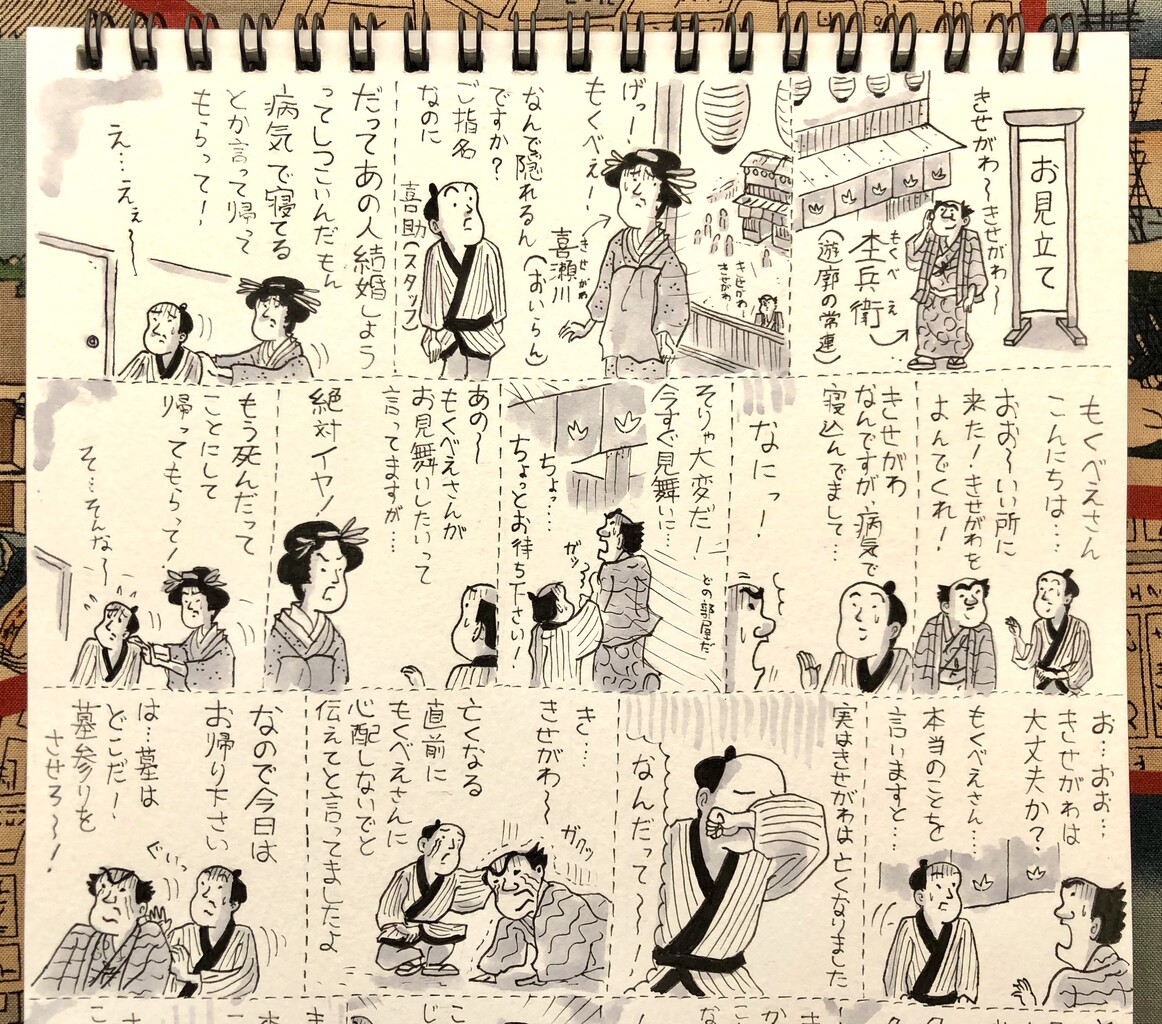 お見立て
きせがわ〜きせがわ〜
もくべえ
杢兵衛
（遊廓の常連）
きせがわ
きせがわ
げっ！
もくべえ！
きせがわ
喜瀬川
（おいらん）
なんで隠れるん
ですか？
ご指名
なのに
喜助（スタッフ）
だってあの人結婚しよう
ってしつこいんだもん
病気で寝てる
とか言って帰って
もらって！
え…えぇ〜
もくべえさん
こんにちは…
おお〜いい所に
来た！きせがわを
よんでくれ！
きせがわ
なんですが病気で
寝込んでまして…
なにっ！
そりゃ大変だ！
今すぐ見舞いに…
どの部屋だ
ガッ
ちょっ…
ちょっとお待ち下さい！
あの〜
もくべえさんが
お見舞いしたいって
言ってますが…
絶対イヤ！
もう死んだって
ことにして
帰ってもらって！
そ…そんな〜
お…おお…
きせがわは
大丈夫か？
もくべえさん…
本当のことを
言いますと…
実はきせがわは亡くなりました
なんだって〜！
き…
きせがわ〜
ガクッ
亡くなる
直前に
もくべえさんに
心配しないでと
伝えてと言ってましたよ
なので今日は
お帰り下さい
ぐいっ
は…墓は
どこだ！
墓参りを
させろ〜！